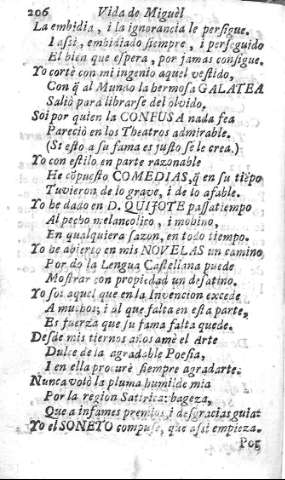 206 Vida de Miguèl
La embidia, i la ignorancia le persigue.
I assi, embidiado siempre, i perseguido
El bien que espera, por jamas consigue.
Yo cortè con mi ingenio aquel vestido,
Con q̃ al Mundo la hermosa GALATEA
Saliò para librarse del olvido.
Soi por quien la CONFUSA nada fea
Pareciò en los Theatros admirable.
(Si esto a su fama es justo se le crea.)
Yo con estilo en parte razonable
He cõpuesto COMEDIAS, q̃ en su tiẽpo
Tuvieron de lo grave, i de lo afable.
Yo he dado en D. QUIJOTE passatiempo
Al pecho melancolico, i mohino,
En qualquiera sazon, en todo tiempo.
Yo he abierto en mis NOVELAS un camino
Por do la Lengua Castellana puede
Mostrar con propiedad un desatino.
Yo soi aquel que en la Invencion excede
A muchos, i al que falta en esta parte,
Es fuerza que su fama falta quede.
Desde mis tiernos años amè el Arte
Dulce de la agradable Poesia,
I en ella procurè siempre agradarte.
Nunca volò la pluma humilde mia
Por la region Satirica: bageza,
Que a infames premios, i desgracias guia.
Yo el SONETO compuse, que assi empieza.
Por